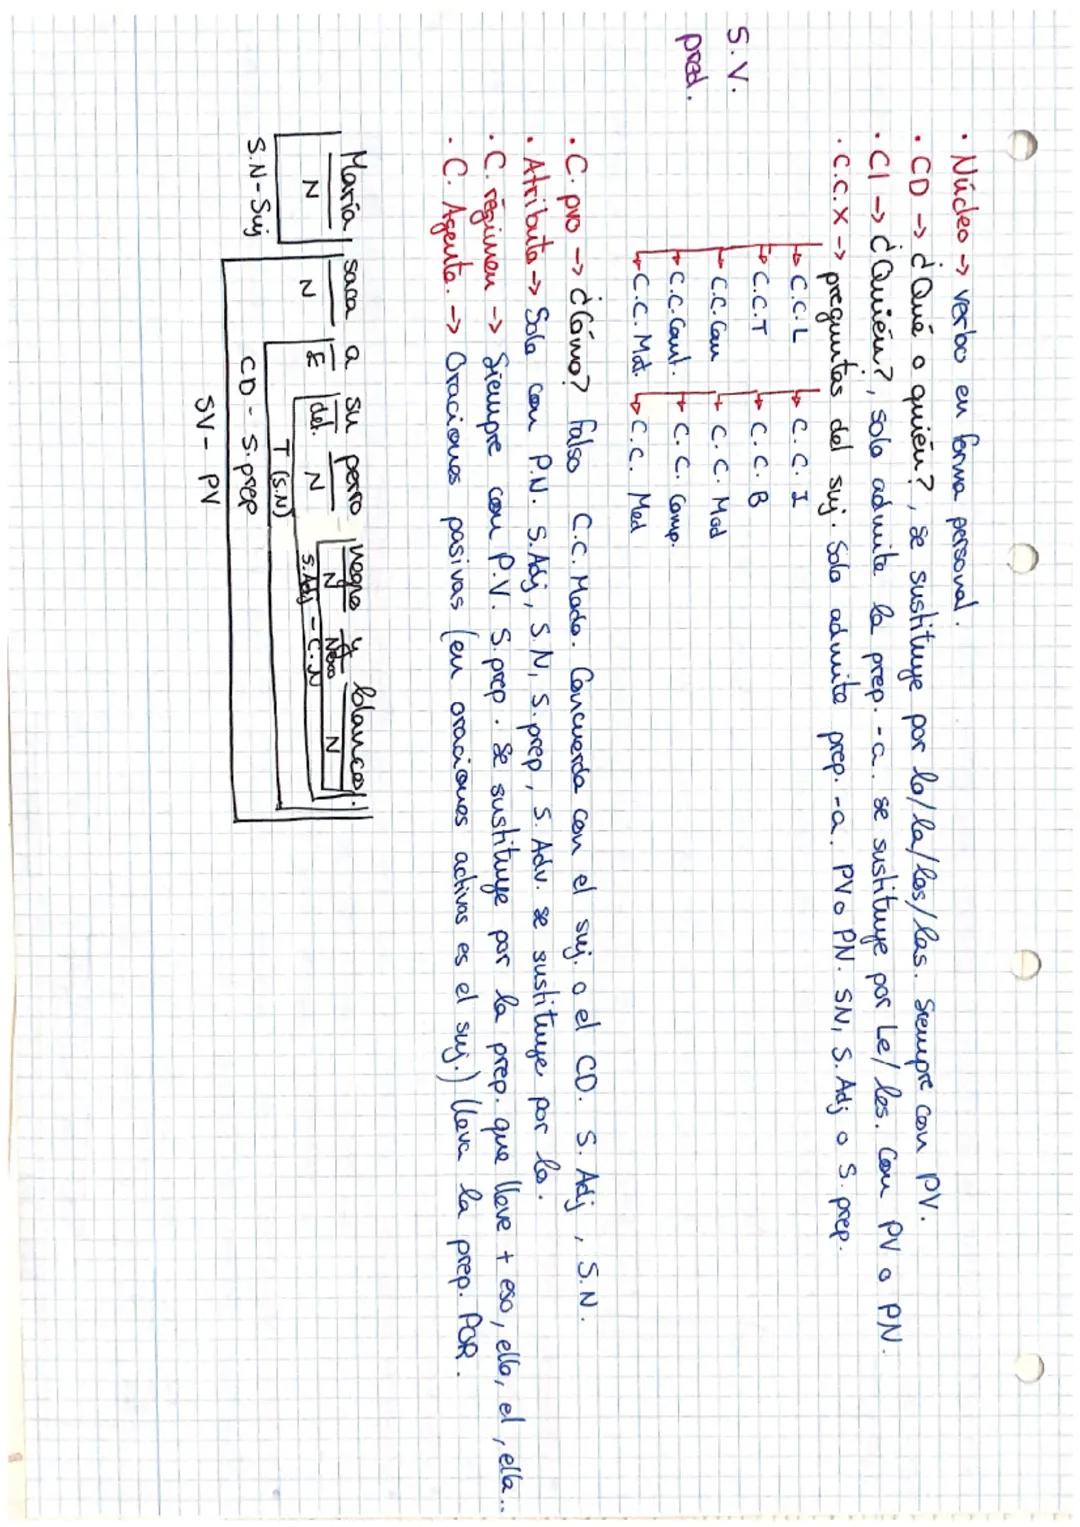 S.V. pred.
· Núcleo -> verbo en forma personal.
· CD -> ¿Qué o quién?, se sustituye por lo/la/los/las. Siempre con PV.
· CI -> ¿Quién?, solo admite la prep. -a. se sustituye por Le/les. Con PV o PN.
· C.C.X -> preguntas del suj. Solo admite prep. -a. PV o PN. SN, S.Adj o S.prep.
C.C.L C.C.I
C.C.T C.C.B
C.C.Cau C.C.Mod
C.C.Cant. C.C.Comp.
C.C.Mat. C.C. Med
· C.pvo -> ¿Cómo? Falso C.C.Modo. Concuerda con el suj. o el CD. S.Adj, S.N.
· Atributo -> Solo con P.N. S.Adj, S.N, S.prep, S.Adv. se sustituye por lo.
· C. régimen -> Siempre con P.V. S.prep. se sustituye por la prep. que lleve + eso, ello, el, ella..
· C. Agente. -> Oraciones pasivas (en oraciones activas es el suj.) lleva la prep. POR.
María saca a su perro negro y blanco.
N N E det. N N Nexo N
S.Adj - C.N
T (S.N)
S.N-Suj CD - S.prep
SV - PV